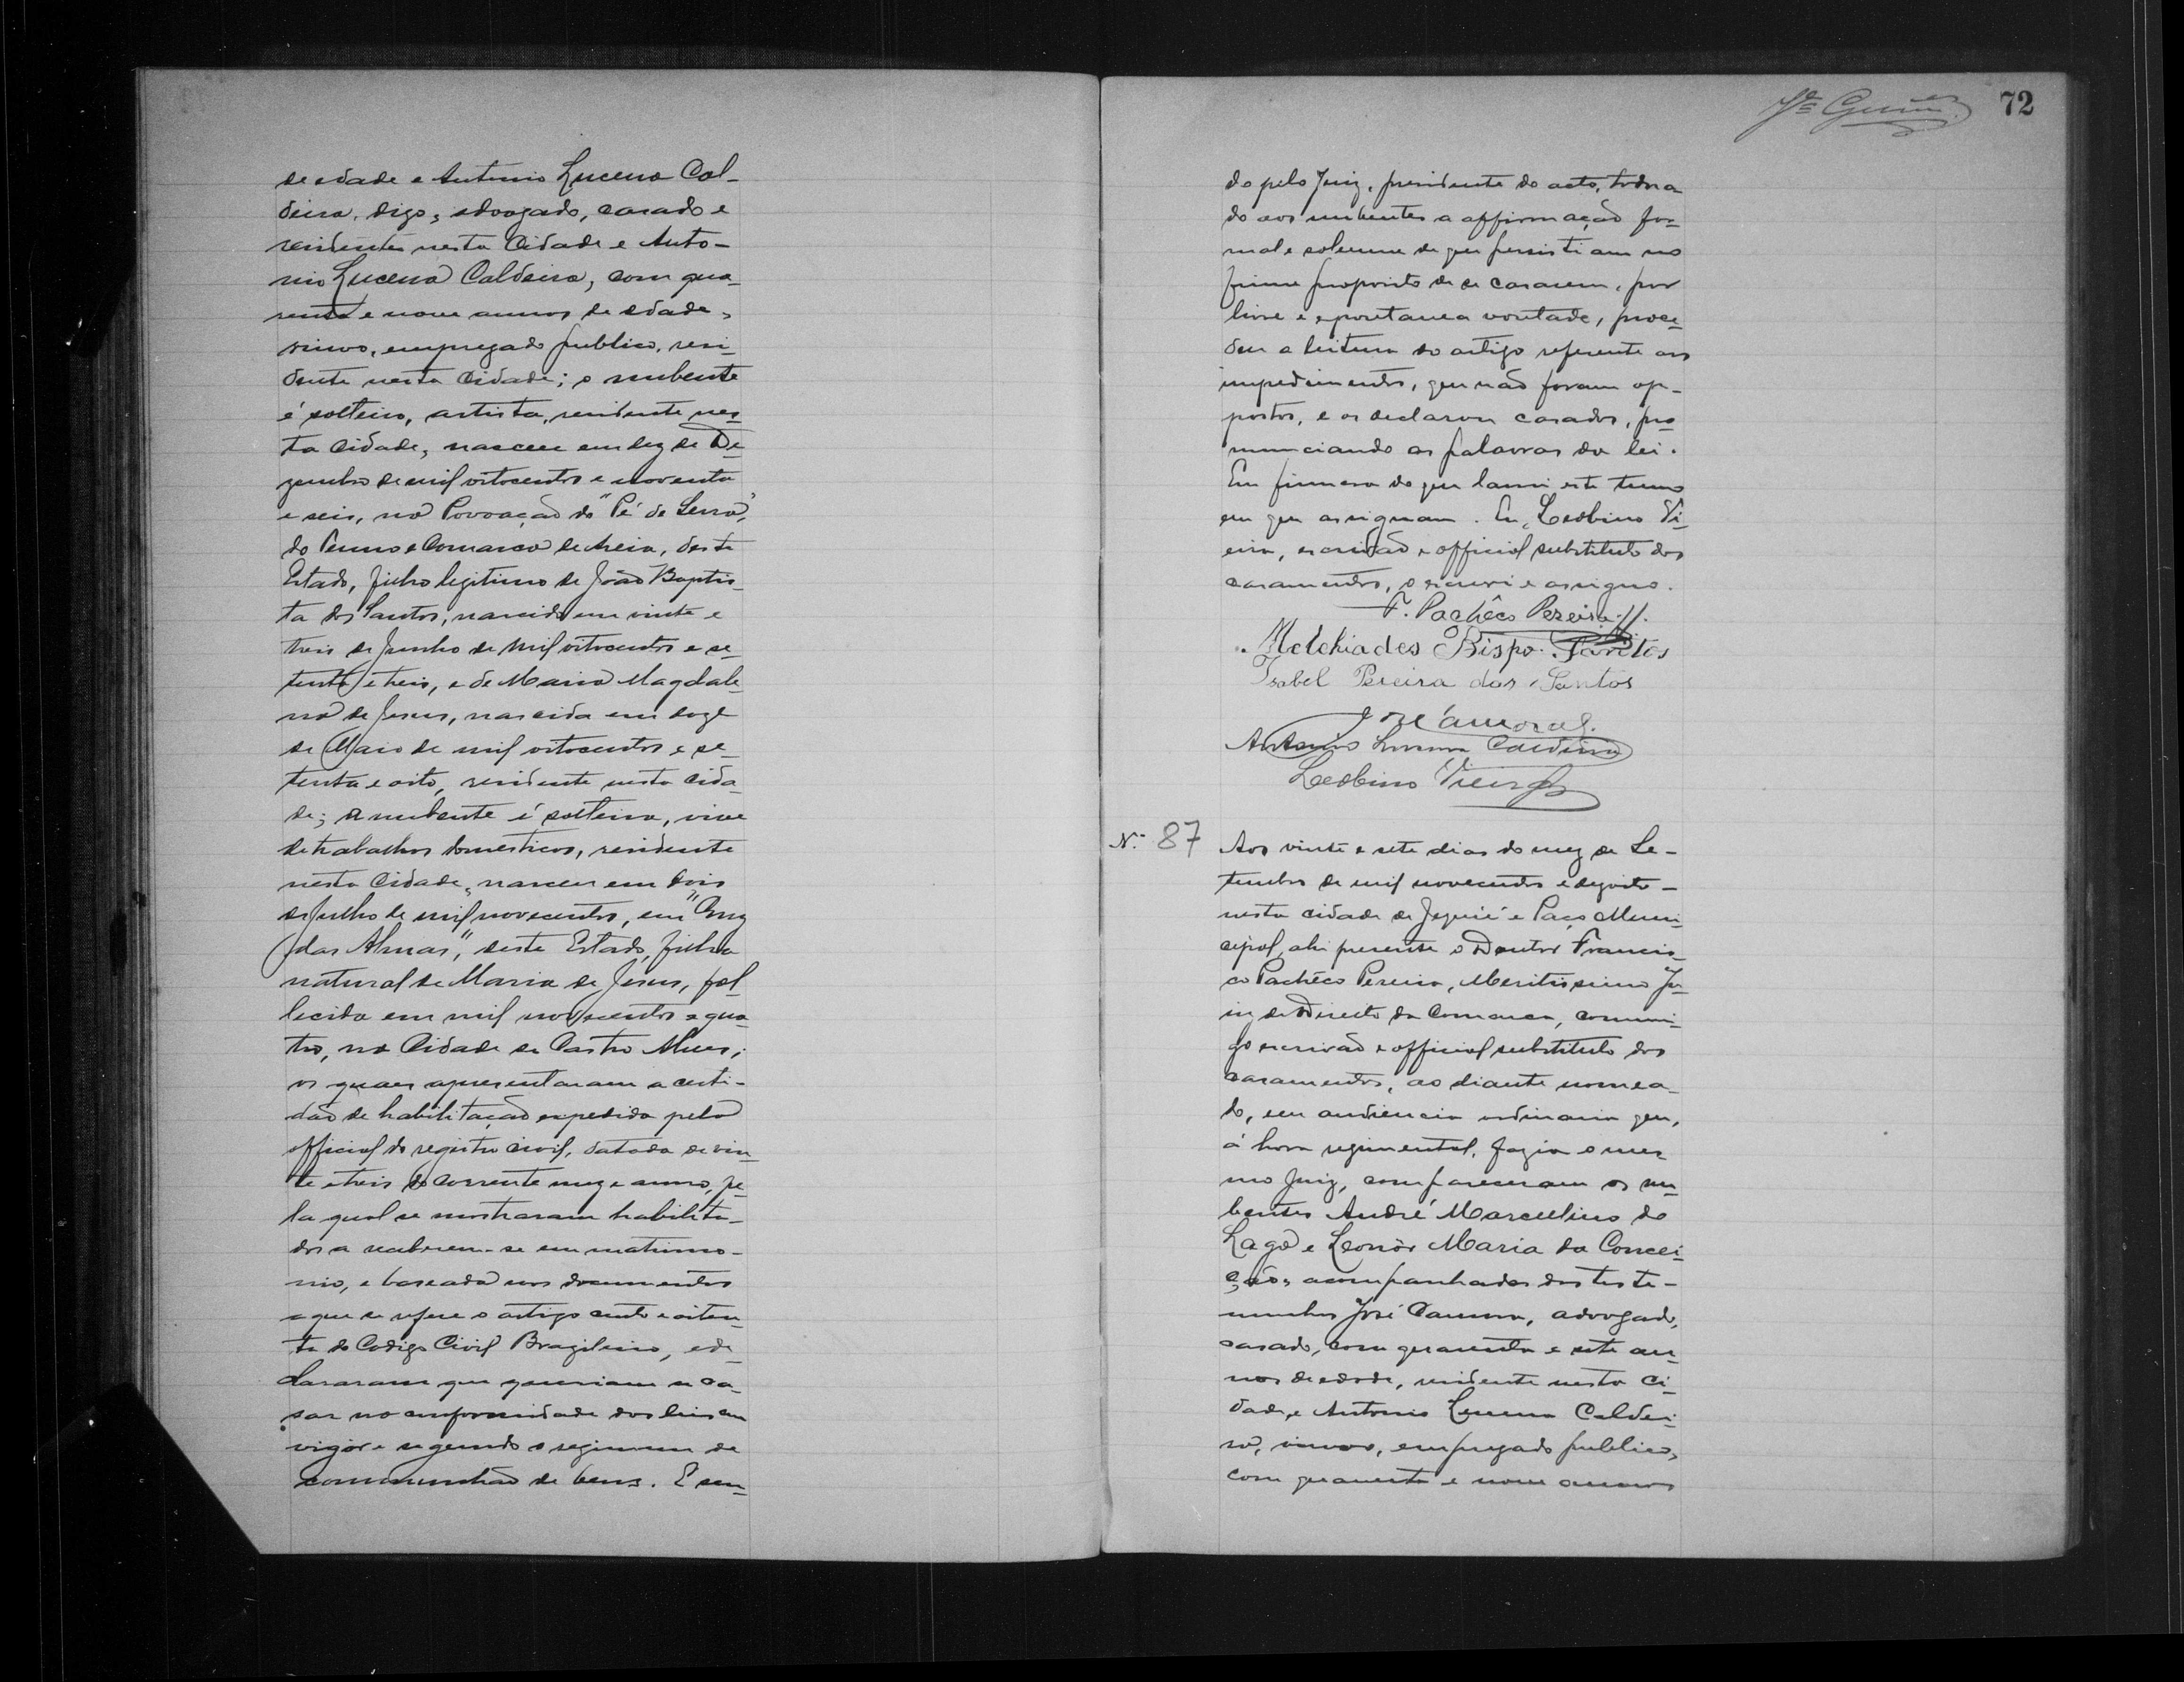 de edade e Antonio Lucena Cal-
deira, digo, advogado, casado e
residentes nesta Cidade e Anto-
nio Lucena Caldeira, com qua-
renta e nove annos de edade,
viuvo, empregado publico, resi-
dente nesta Cidade; o nubente
é solteiro, artista, residente nes-
ta cidade, nasceu em dez de De-
zembro de mil oitocentos e noventa
e seis, na Povoação do "Pé de Serra",
do Termo e Comarca de Areia, deste
Estado, filho legitimo de João Baptis-
ta dos Santos, nascido em vinte e
treis de Junho de mil oitocentos e se-
tenta e treis, e de Maria Magdale-
na de Jesus, nascida em doze
de Maio de mil oitocentos e se-
tenta e oito, residente nesta cida-
de; a nubente é solteira, vive
de trabalhos domesticos, residente
nesta Cidade, nasceu em dois
de Julho de mil novecentos, em "Cruz
das Almas", deste Estado, filha
natural de Maria de Jesus, fal-
lecida em mil novecentos e qua-
tro, na Cidade de Castro Alves;
os quaes apresentaram a certi-
dão de habilitação expedida pelo
official do registro civil, datada de vin-
te e treis do corrente mez e anno, pe-
la qual se mostraram habilita-
dos a receberem-se em matrimo-
nio, e baseada nos documentos
a que se refere o artigo cento e oiten-
ta do Codigo Civil Brazileiro, e de-
clararam que queriam se ca-
sar na conformidade das leis em
vigôr e segundo o regimem de
communhão de bens. E sen-
72
do pelo Juiz, presidente do acto, toma-
do aos nubentes a affirmação for-
mal e solemne de que persistiam no
firme proposito de se casarem, por
livre e espontanea vontade, proce-
deu a leitura do artigo referente aos
impedimentos, que não foram op-
postos, e os declarou casados, pro-
nunciando as palavras da lei.
Em firmesa do que lavrei este termo
em que assignam. Eu, Leobino Vi-
eira, escrivão e official substituto dos
casamentos, o escrevi e assigno.
F. Pachêco Pereira
Melchiades Bispo Santos
Isabel Pereira dos Santos
José
Antonio Lucena Caldeira
Leobino Vieira
N.º 87
Aos vinte e sete dias do mez de Se-
tembro de mil novecentos e dezoito
nesta cidade de Jequié e Paço Muni-
cipal, ahi presente o Doutor Francis-
co Pachêco Pereira, Meritissimo Ju-
iz de Direito da Comarca, commi-
go escrivão e official substituto dos
casamentos, ao diante nomea-
do, em audiencia ordinaria que,
á hora regimental, fazia o mes-
mo Juiz, compareceram os nu-
bentes André Marcellino do
Lago e Leonôr Maria da Concei-
ção, acompanhados das teste-
munhas José, advogado,
casado, com quarenta e sete an-
nos de edade, residente nesta Ci-
dade, e Antonio Lucena Caldei-
ra, viuvo, empregado publico,
com quarenta e nove annos